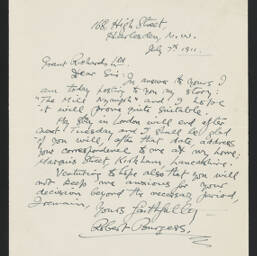 168 High Street
Harlesden, N.W.
July 7th 1911.
Grant Richards Ltd.
Dear Sir: In answer to yours I
am today posting to you my story:
"The Mill Nymph" and I hope
it will prove quite suitable.
My stay in London will end after
next Tuesday and I shall be glad
if you will, after that date, address
your correspondence to me at my home:
Marquis Street, Kirkham, Lancashire.
Venturing to hope also that you will
not keep me anxious for your
decision beyond the necessary period,
I remain,
Yours faithfully
Robert Burgess.